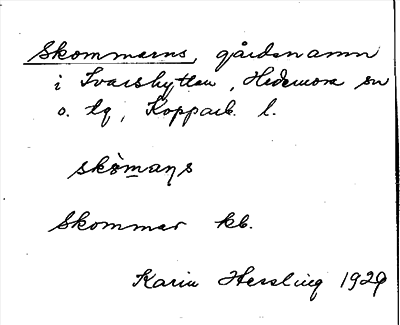 Skommarns, gårdsnamn
i Ivarshyttan, Hedemora sn
o. tg, Kopparb. l.
skòmaṇs
Skommar kb.
Karin Hersling 1929